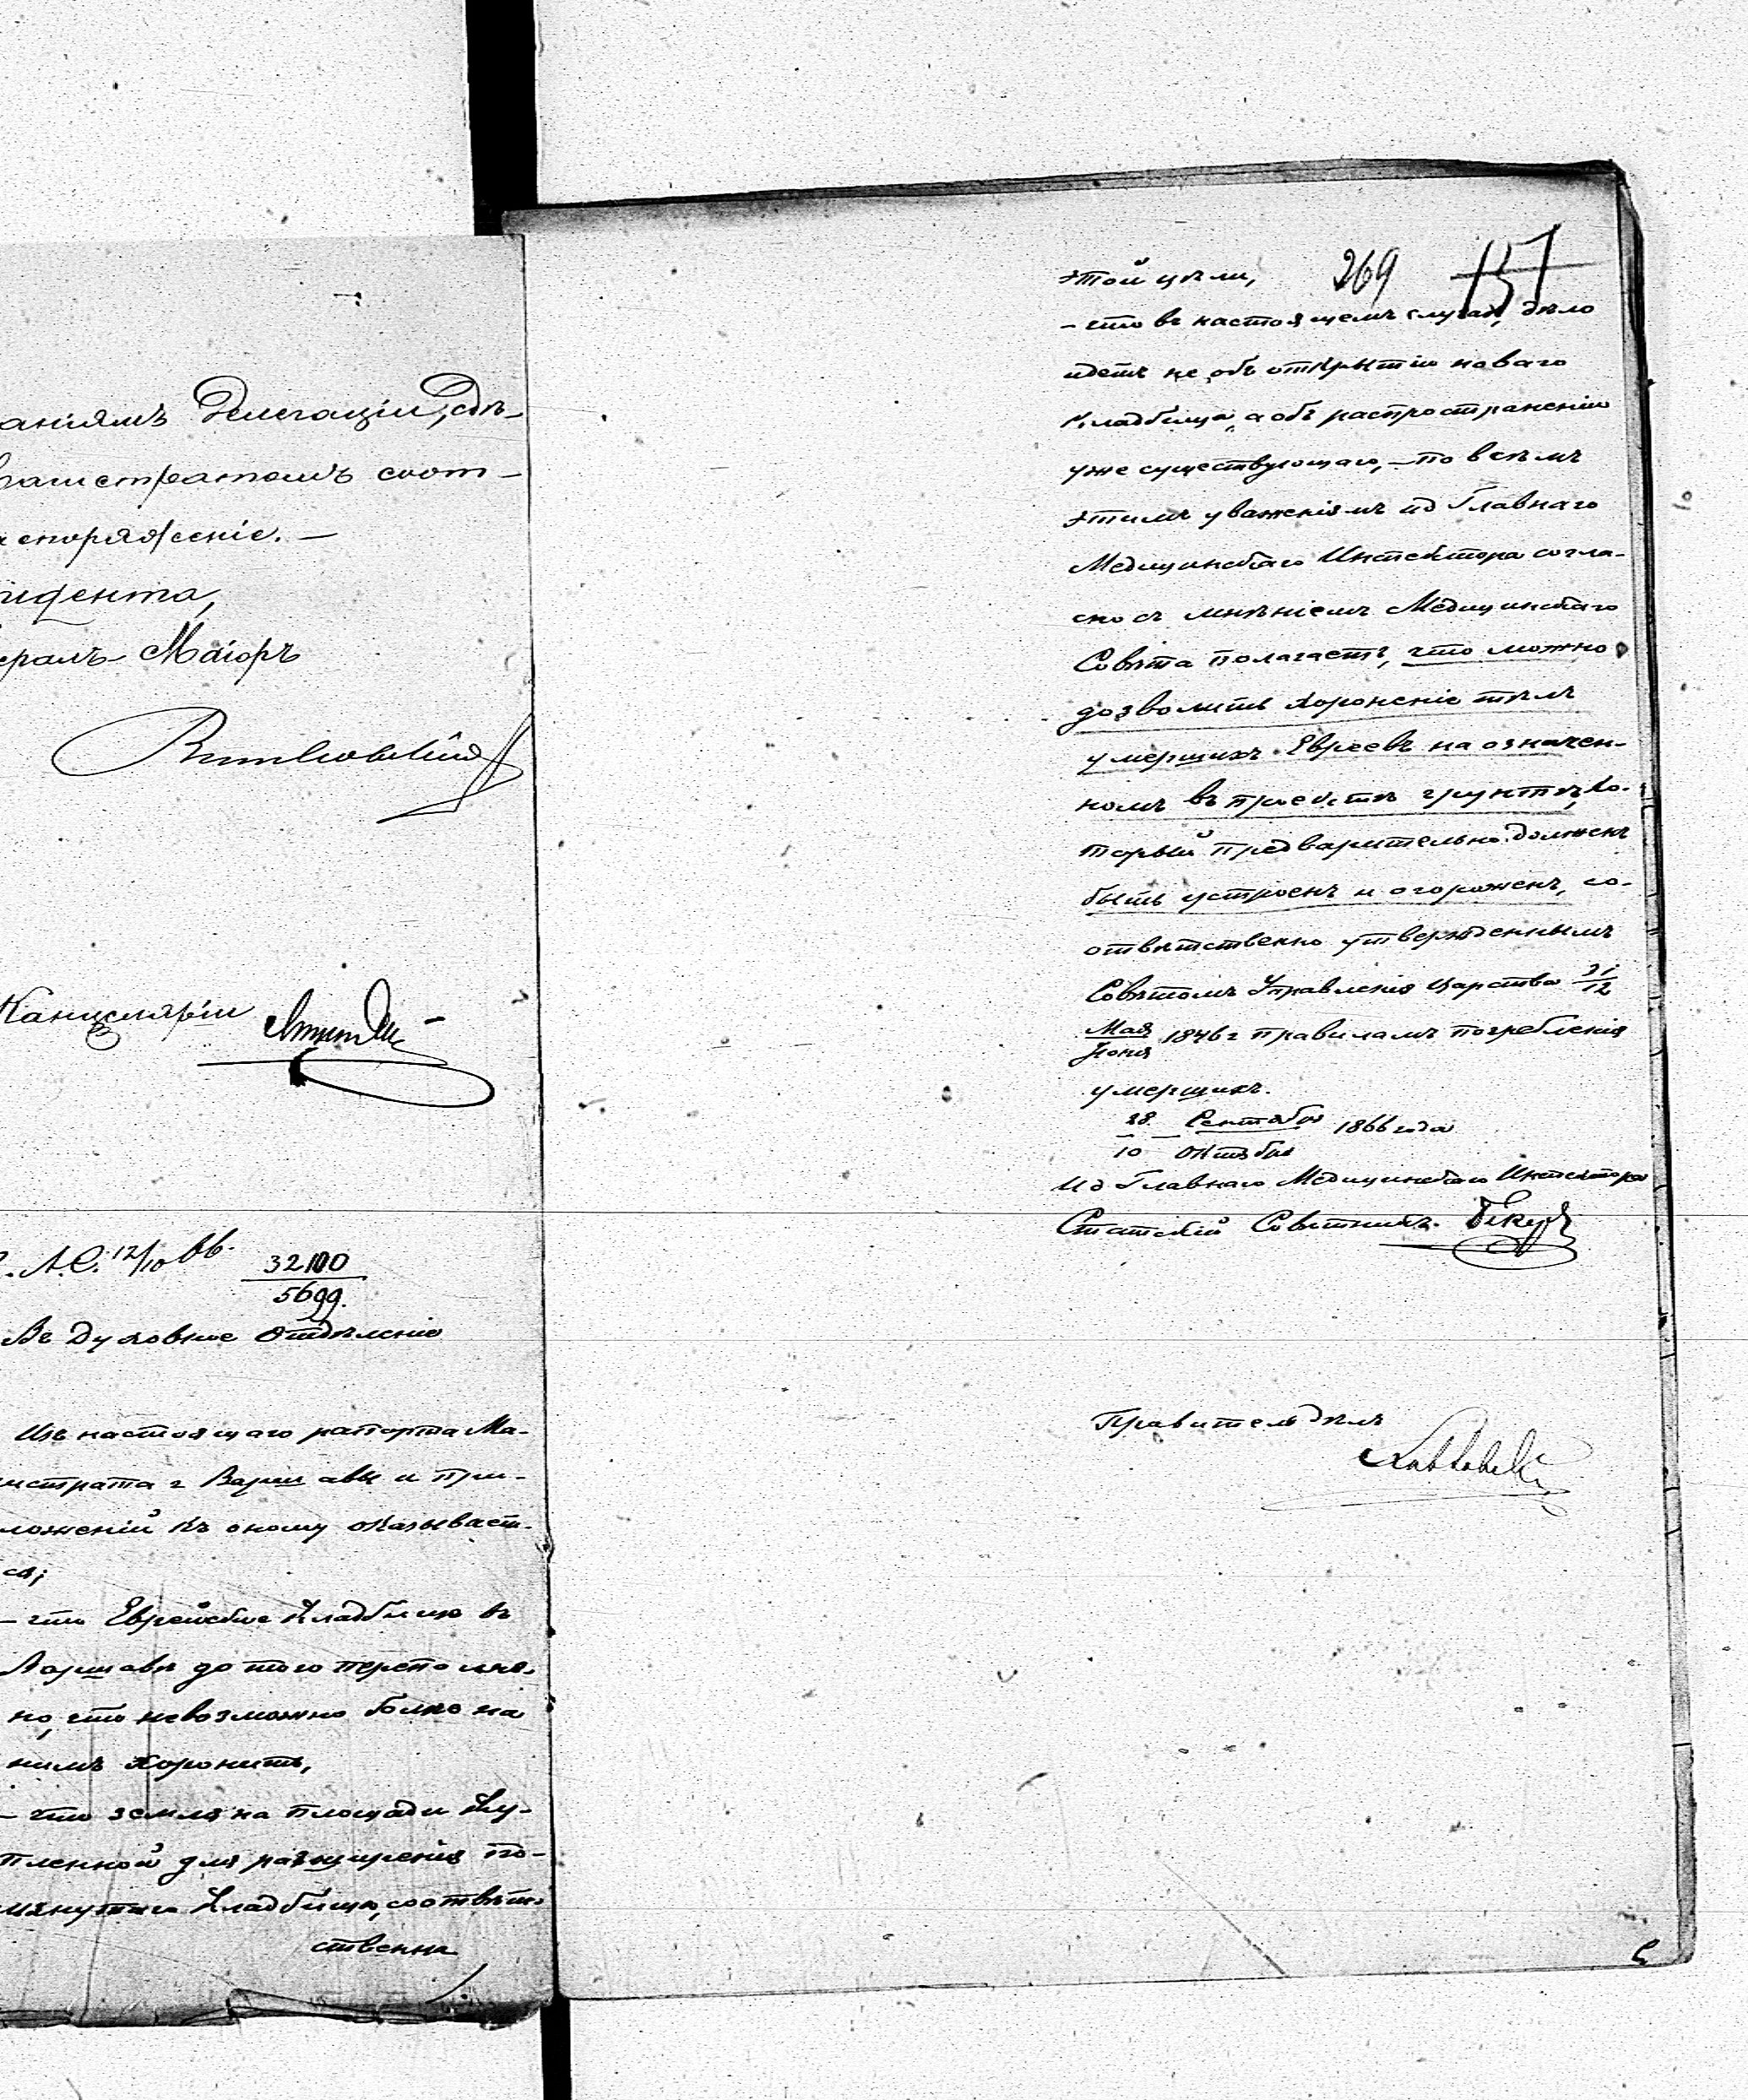 аніямъ Делегаціи, сдѣ-
магистратомъ соот-
споряженіе. —
зидента,
ералъ-Маіоръ
Канцеляріи
А.С. 12/10 66.
32100
5699.
Въ Духовное Отдѣленіе
Изъ настоящаго рапорта Ма-
истрата г Варшавы и при-
ложеній къ оному оказывает-
ся;
– что Еврейское Кладбище въ
Варшавѣ до того переполне-
но, что невозможно болѣе на
нимъ хоронить,
– что земля на площади ку-
пленной для разширенія по-
мянутаго Кладбища, соотвѣт-
ственна
269 137
этой цѣли,
– что въ настоящемъ случаѣ, дѣло
идетъ не объ открытіи новаго
Кладбища, а объ распространеніи
уже существующаго, – по всѣмъ
этимъ уваженіямъ ИД Главнаго
Медицинскаго Инспектора согла-
сно съ мнѣніемъ Медицинскаго
Совѣта полагаетъ, что можно
дозволить хороненіе тѣлъ
умершихъ Евреевъ на означен-
номъ въ проектѣ грунтѣ, ко-
торый предварительно долженъ
быть устроенъ и огороженъ, со-
отвѣтственно утвержденнымъ
Совѣтомъ Управленія Царства 31/12
Мая/Іюня 1846 г правиламъ погребенія
умершихъ.
28 Сентября 1866 года
10 Октября
ИД Главнаго Медицинскаго Инспектора
Статскій Совѣтникъ.
Правитель дѣлъ